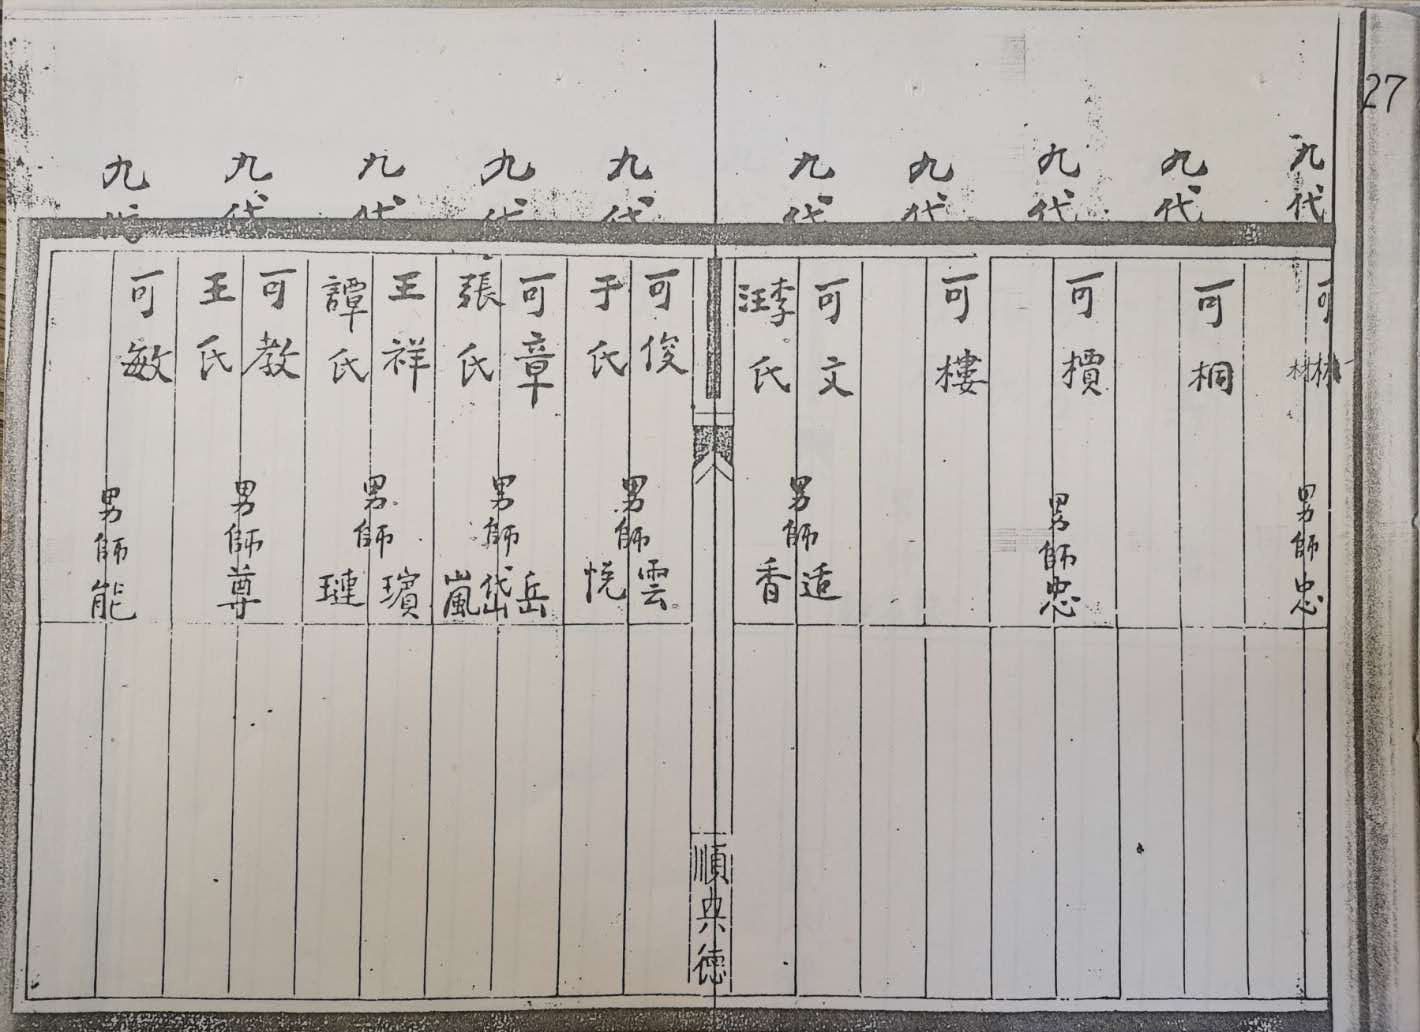 27
九代
可林
材
男師忠
九代
可桐
九代
可櫝
男師忠
九代
可樓
九代
可文
李汪氏
男師适
香
順典德
九代
可俊
于氏
男師雲
悦
九代
可章
張氏
男師岳
岱
嵐
九代
王祥
譚氏
男師璸
璉
九代
可教
王氏
男師尊
九代
可敏
男師能